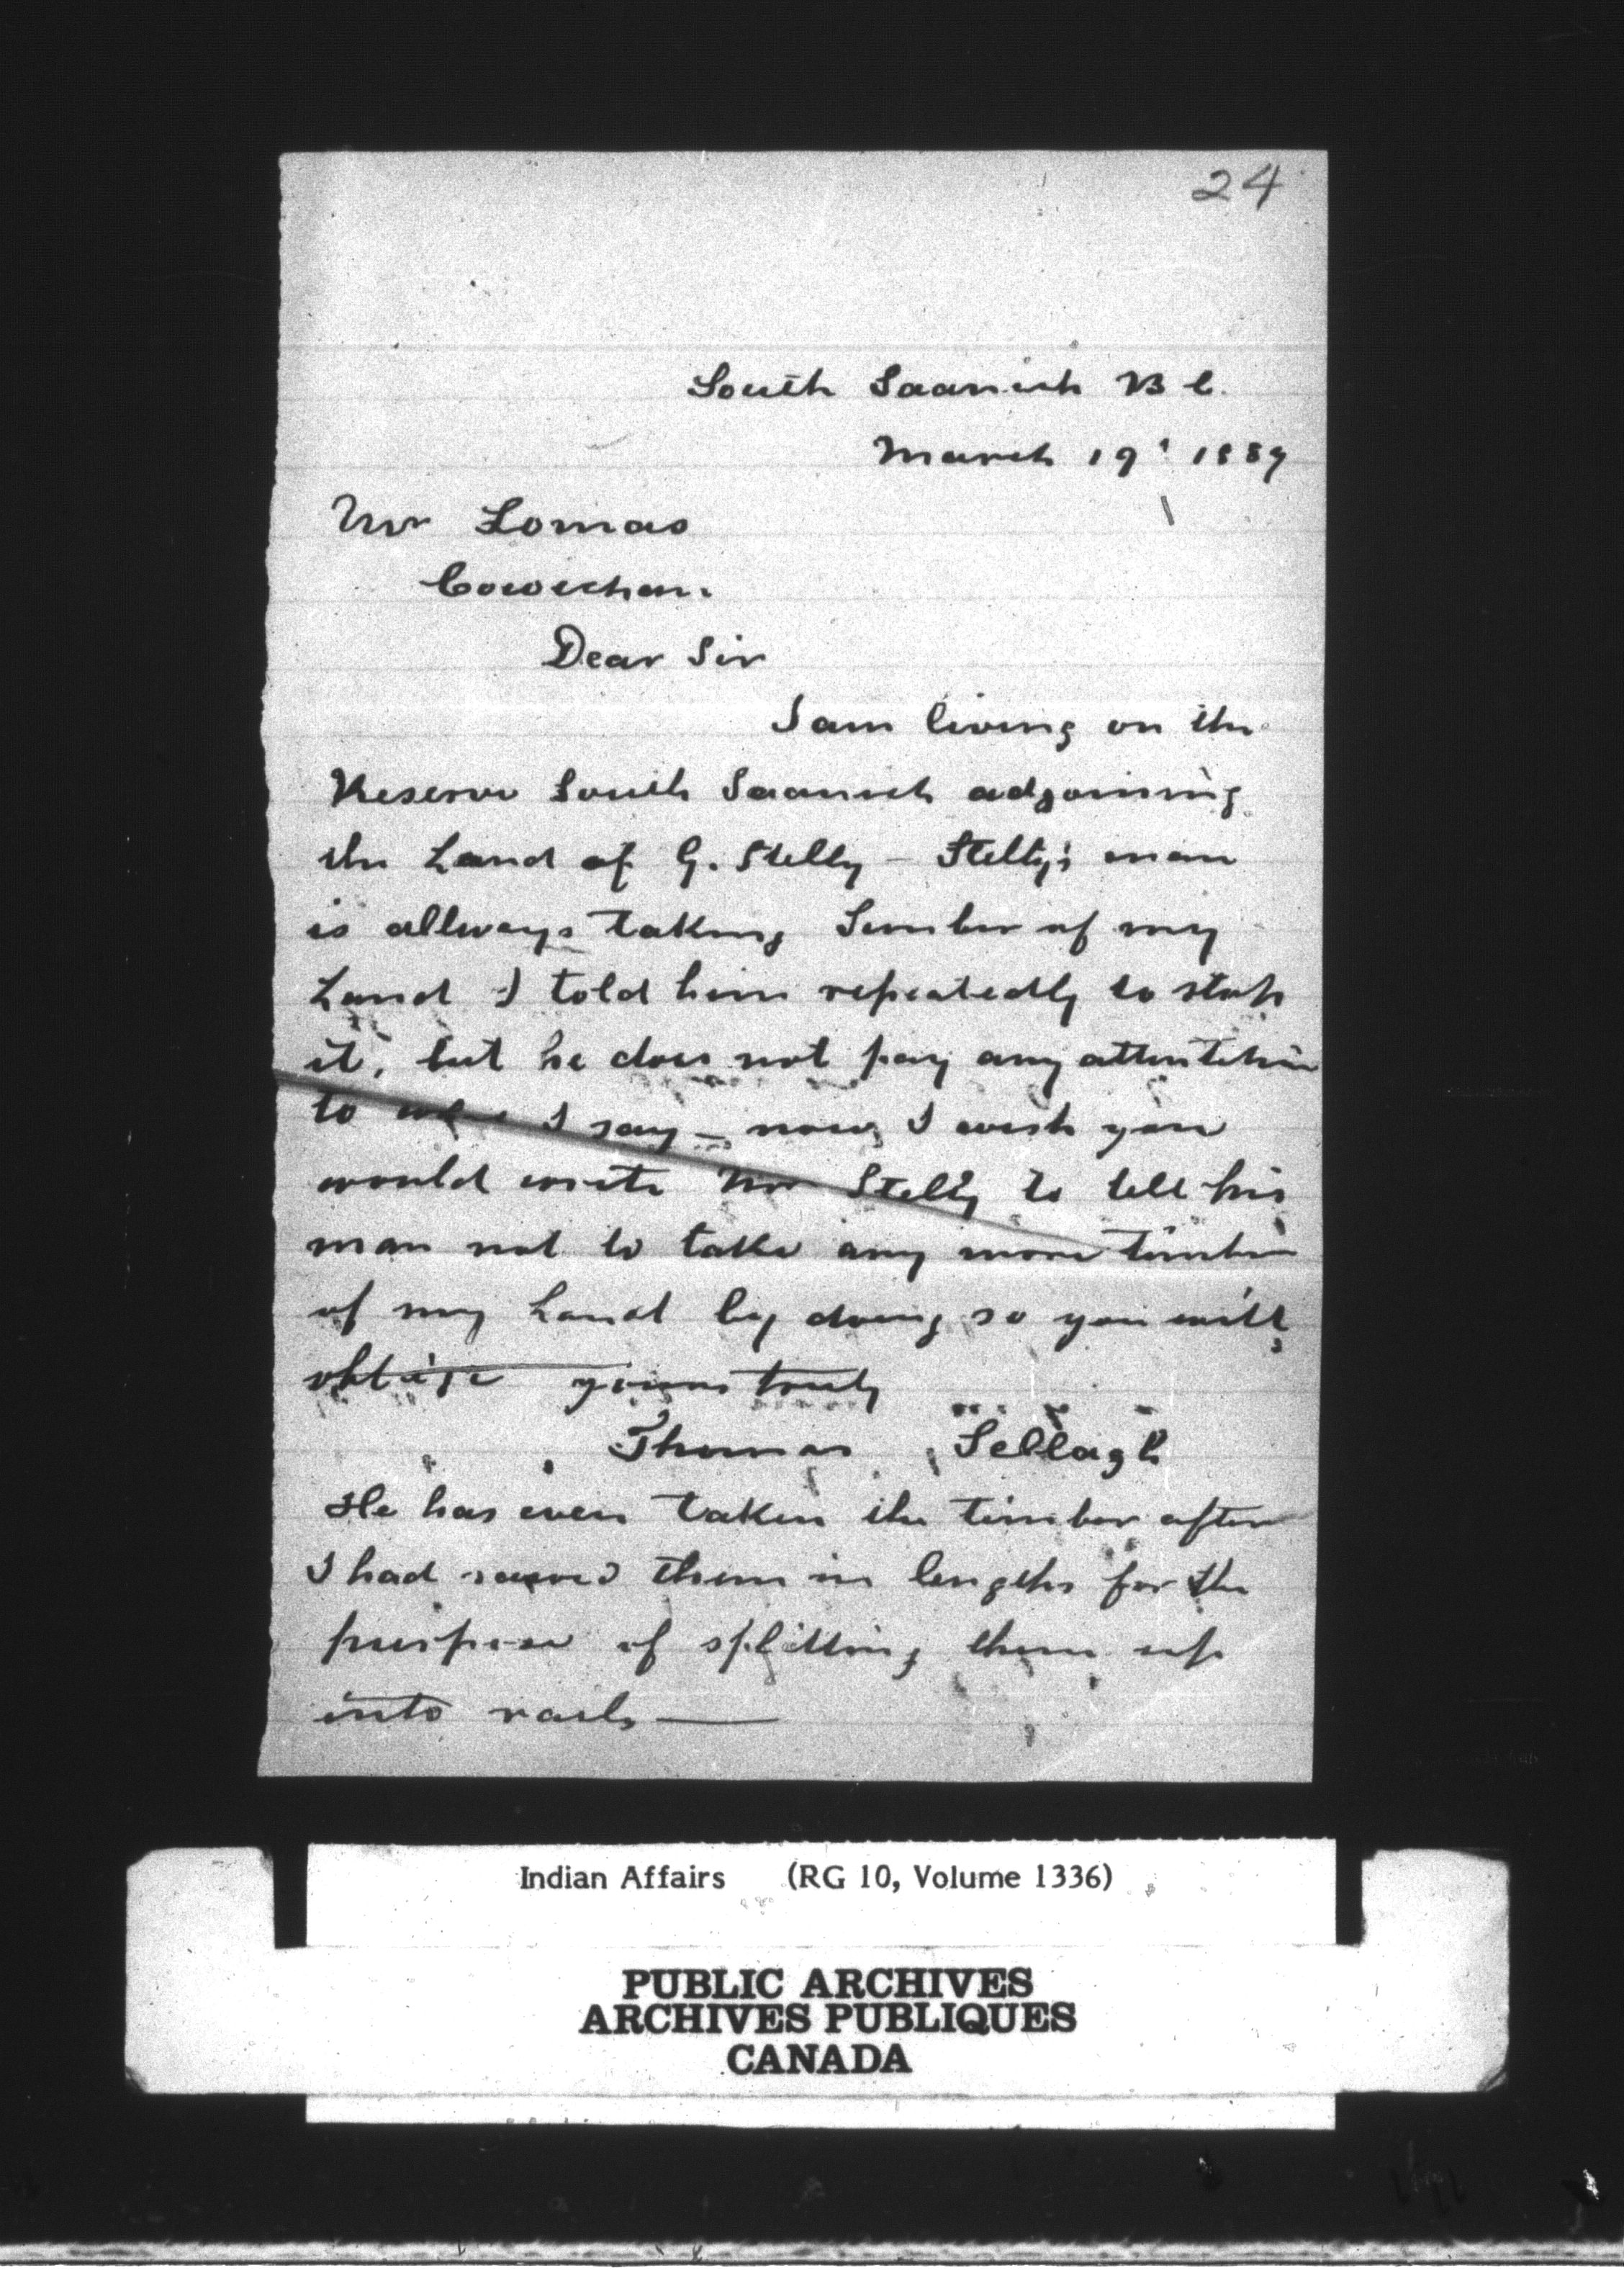 24
South Saanich B C.
March 19' 1889
Mr Lomas
Cowichan.
Dear Sir
I am living on the
Reserve South Saanich adjoining
the Land of G. Stelly - Stelly's man
is allways taking Timber of my
Land I told him repeatedly to stop
it, but he does not pay any attention
to I say - now, I wish you
would write Mr Stelly to tell his
man not to take any more timber
of my Land by doing so you will
oblige yours truly
Thomas Sellagh
He has even taken the timber after
I had sawed them in lengths for the
purpose of splitting them up
into rails —
Indian Affairs (RG 10, Volume 1336)
PUBLIC ARCHIVES
ARCHIVES PUBLIQUES
CANADA